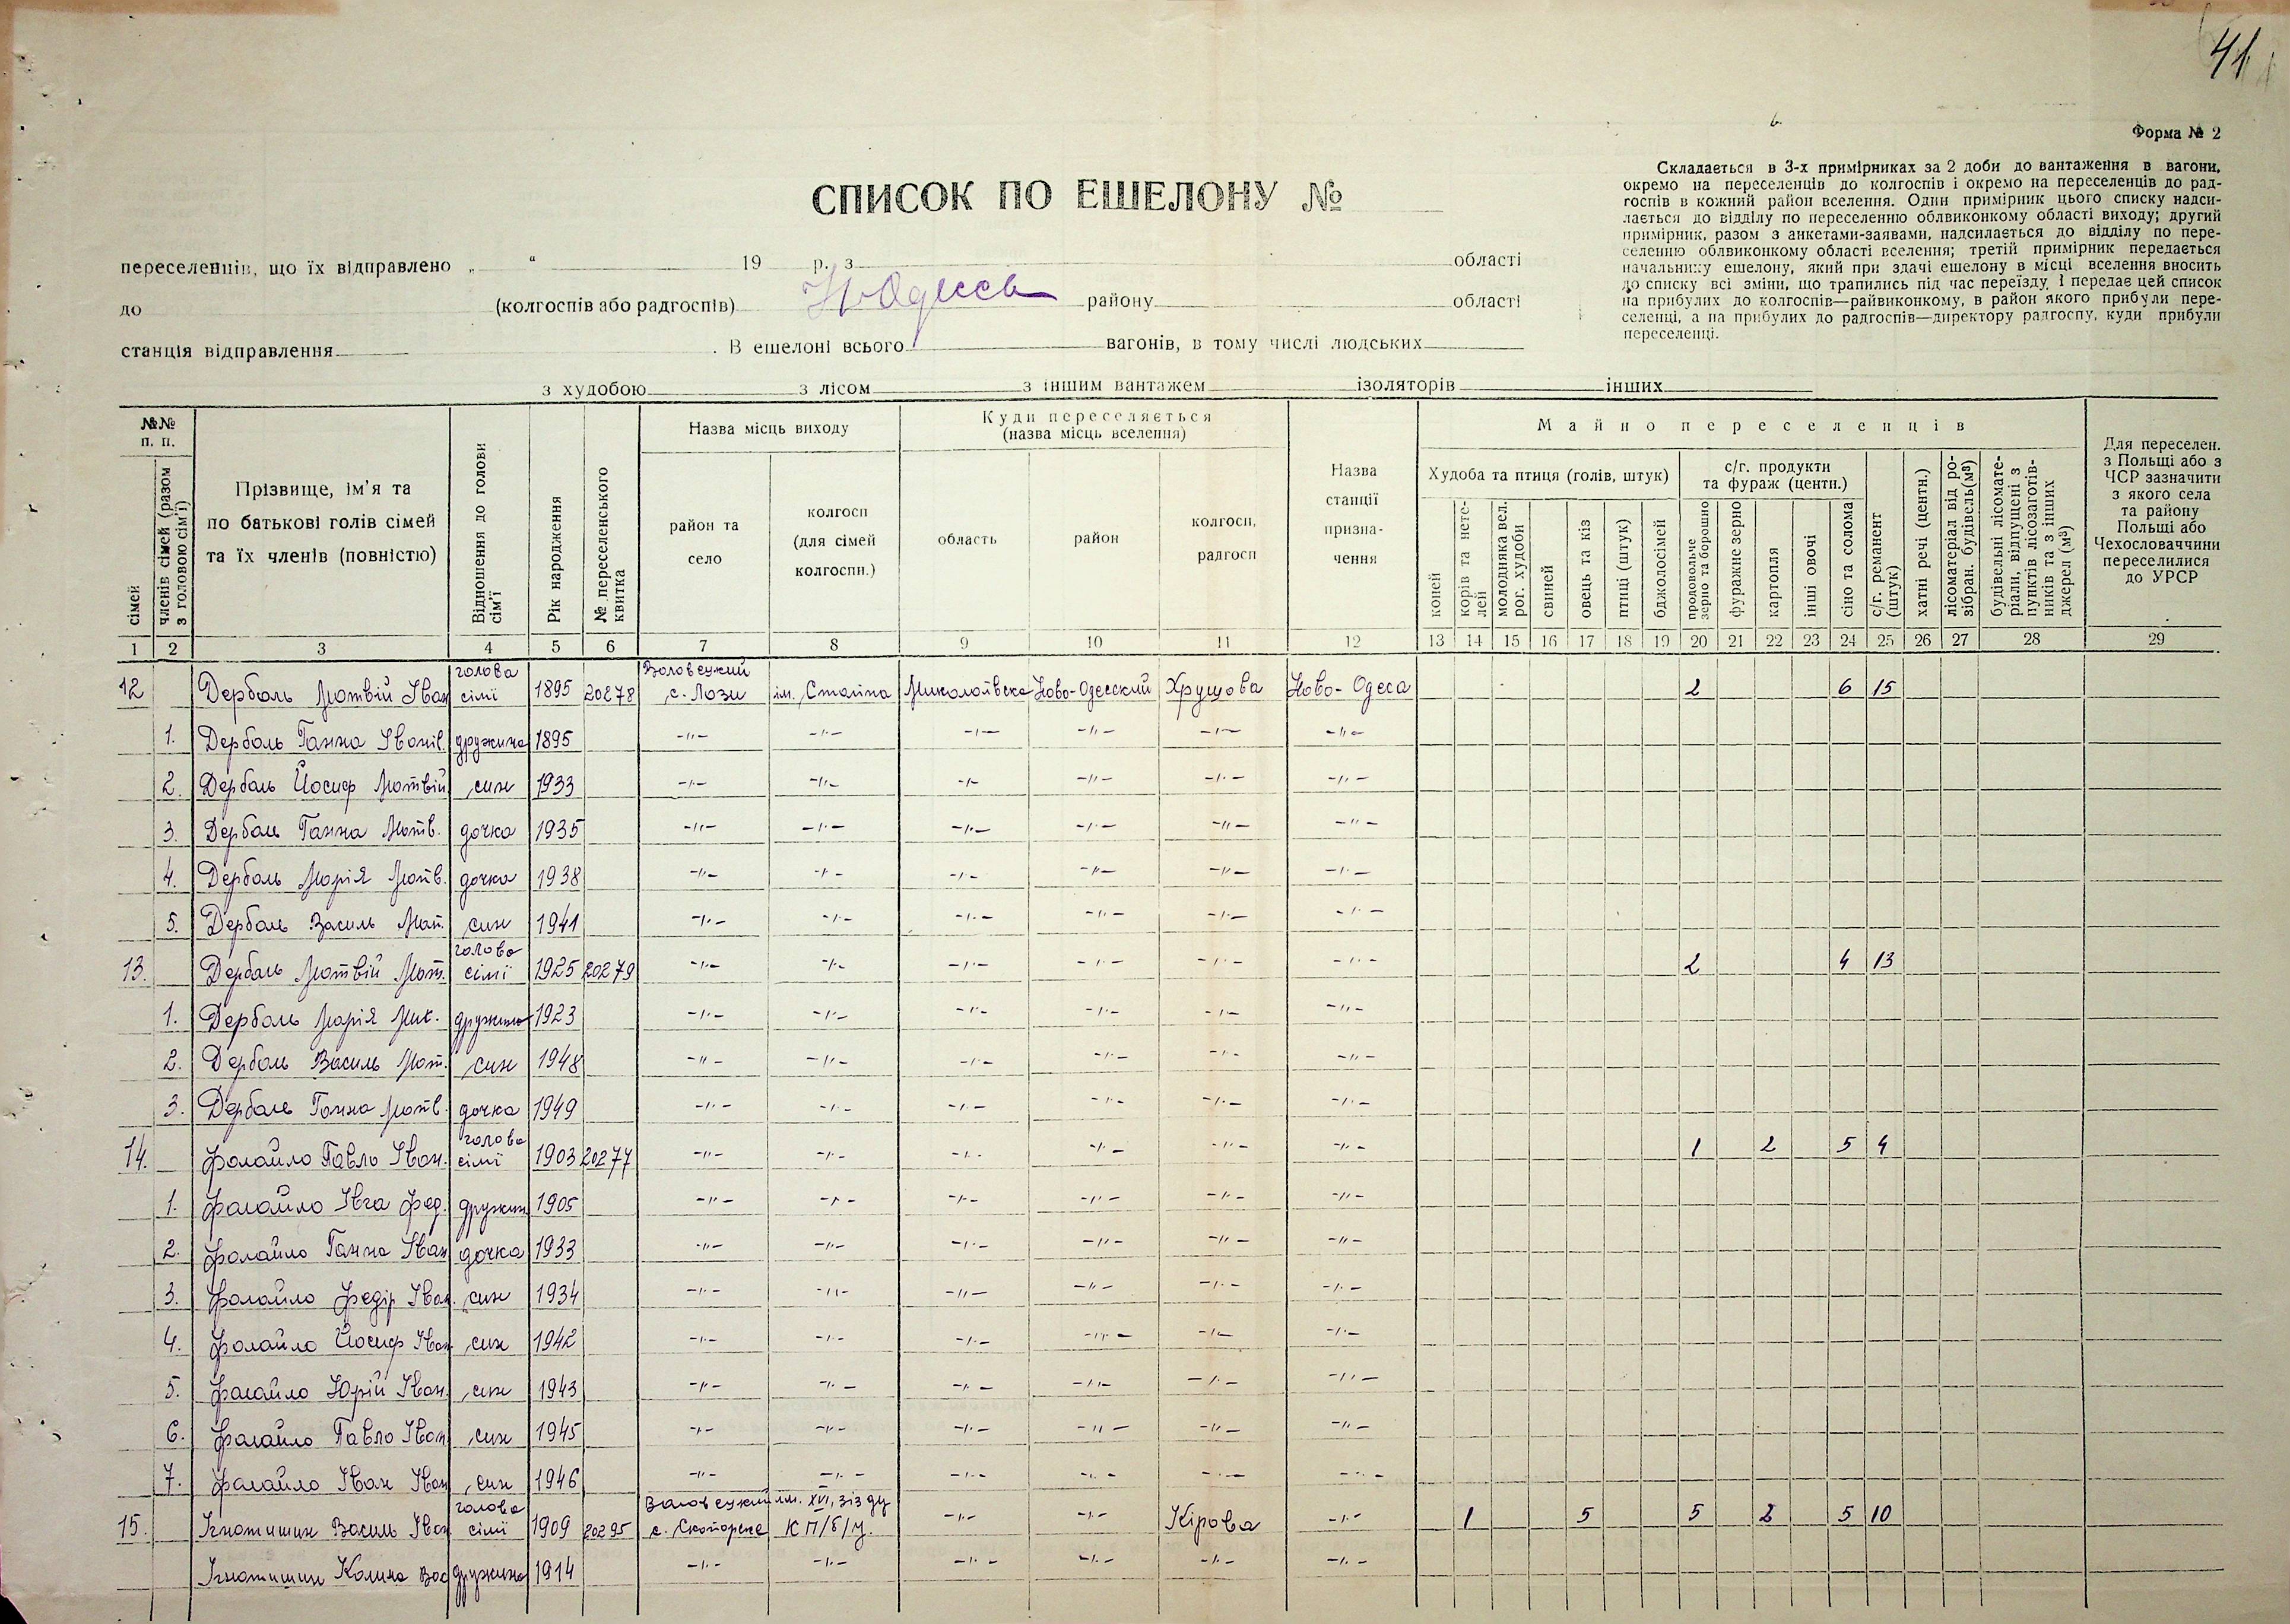 41
Форма № 2
СПИСОК ПО ЕШЕЛОНУ №
Складається в 3-х примірниках за 2 доби до вантаження в вагони,
окремо на переселенців до колгоспів і окремо на переселенців до рад-
госпів в кожний район вселення. Один примірник цього списку надси-
лається до відділу по переселенню облвиконкому області виходу; другий
примірник, разом з анкетами-заявами, надсилається до відділу по пере-
селенню облвиконкому області вселення; третій примірник передається
начальнику ешелону, який при здачі ешелону в місці вселення вносить
до списку всі зміни, що трапились під час переїзду, і передає цей список
на прибулих до колгоспів—райвиконкому, в район якого прибули пере-
селенці, а на прибулих до радгоспів—директору радгоспу, куди прибули
переселенці.
переселенців, що їх відправлено „ “ 19 р. з області
до (колгоспів або радгоспів) Н-Одеса району області
станція відправлення . В ешелоні всього вагонів, в тому числі людських
з худобою з лісом з іншим вантажем ізоляторів інших
№№ п. п.
сімей
членів сімей (разом з головою сім'ї)
Прізвище, ім'я та
по батькові голів сімей
та їх членів (повністю)
Відношення до голови сім'ї
Рік народження
№ переселенського квитка
Назва місць виходу
район та село
колгосп (для сімей колгоспн.)
Куди переселяється
(назва місць вселення)
область
район
колгосп, радгосп
Назва станції призна-чення
Майно переселенців
Худоба та птиця (голів, штук)
коней
корів та нете-лей
молодняка вел. рог. худоби
свиней
овець та кіз
птиці (штук)
бджолосімей
с/г. продукти
та фураж (центн.)
продовольче зерно та борошно
фуражне зерно
картопля
інші овочі
сіно та солома
с/г. реманент (штук)
хатні речі (центн.)
лісоматеріал від ро-зібран. будівель (м³)
будівельні лісомате-ріали, відпущені з пунктів лісозаготів-ників та з інших джерел (м³)
Для переселен.
з Польщі або з
ЧСР зазначити
з якого села
та району
Польщі або
Чехословаччини
переселилися
до УРСР
1 2 3 4 5 6 7 8 9 10 11 12 13 14 15 16 17 18 19 20 21 22 23 24 25 26 27 28 29
12 Дербаль Матвій Іван голова сімї 1895 20278 Воловецкий с. Лази ім. Сталіна Миколаївска Ново-Одесский Хрущова Ново-Одеса 2 6 15
1. Дербаль Ганна Іванів. дружина 1895 -"- -"- -"- -"- -"- -"-
2. Дербаль Йосиф Матвій син 1933 -"- -"- -"- -"- -"- -"-
3. Дербаль Ганна Матв. дочка 1935 -"- -"- -"- -"- -"- -"-
4. Дербаль Марія Матв. дочка 1938 -"- -"- -"- -"- -"- -"-
5. Дербаль Василь Мат. син 1941 -"- -"- -"- -"- -"- -"-
13. Дербаль Матвій Мат. голова сімї 1925 20279 -"- -"- -"- -"- -"- -"- 2 4 13
1. Дербаль Марія Мих. дружина 1923 -"- -"- -"- -"- -"- -"-
2. Дербаль Василь Мат. син 1948 -"- -"- -"- -"- -"- -"-
3. Дербаль Ганна Матв. дочка 1949 -"- -"- -"- -"- -"- -"-
14. Фалайло Павло Іван. голова сімї 1903 20277 -"- -"- -"- -"- -"- -"- 1 2 5 4
1. Фалайло Івга Фед. дружин 1905 -"- -"- -"- -"- -"- -"-
2. Фалайло Ганна Іван дочка 1933 -"- -"- -"- -"- -"- -"-
3. Фалайло Федір Іван. син 1934 -"- -"- -"- -"- -"- -"-
4. Фалайло Йосиф Іван син 1942 -"- -"- -"- -"- -"- -"-
5. Фалайло Юрій Іван. син 1943 -"- -"- -"- -"- -"- -"-
6. Фалайло Павло Іван син 1945 -"- -"- -"- -"- -"- -"-
7. Фалайло Іван Іван син 1946 -"- -"- -"- -"- -"- -"-
15. Ігнатишин Василь Іван голова сімї 1909 20295 Воловецкий ім. XVI, зізду КП/б/У. -"- -"- Кірова -"- 1 5 5 2 5 10
Ігнатишин Калина Вас дружина 1914 -"- -"- -"- -"- -"- -"-